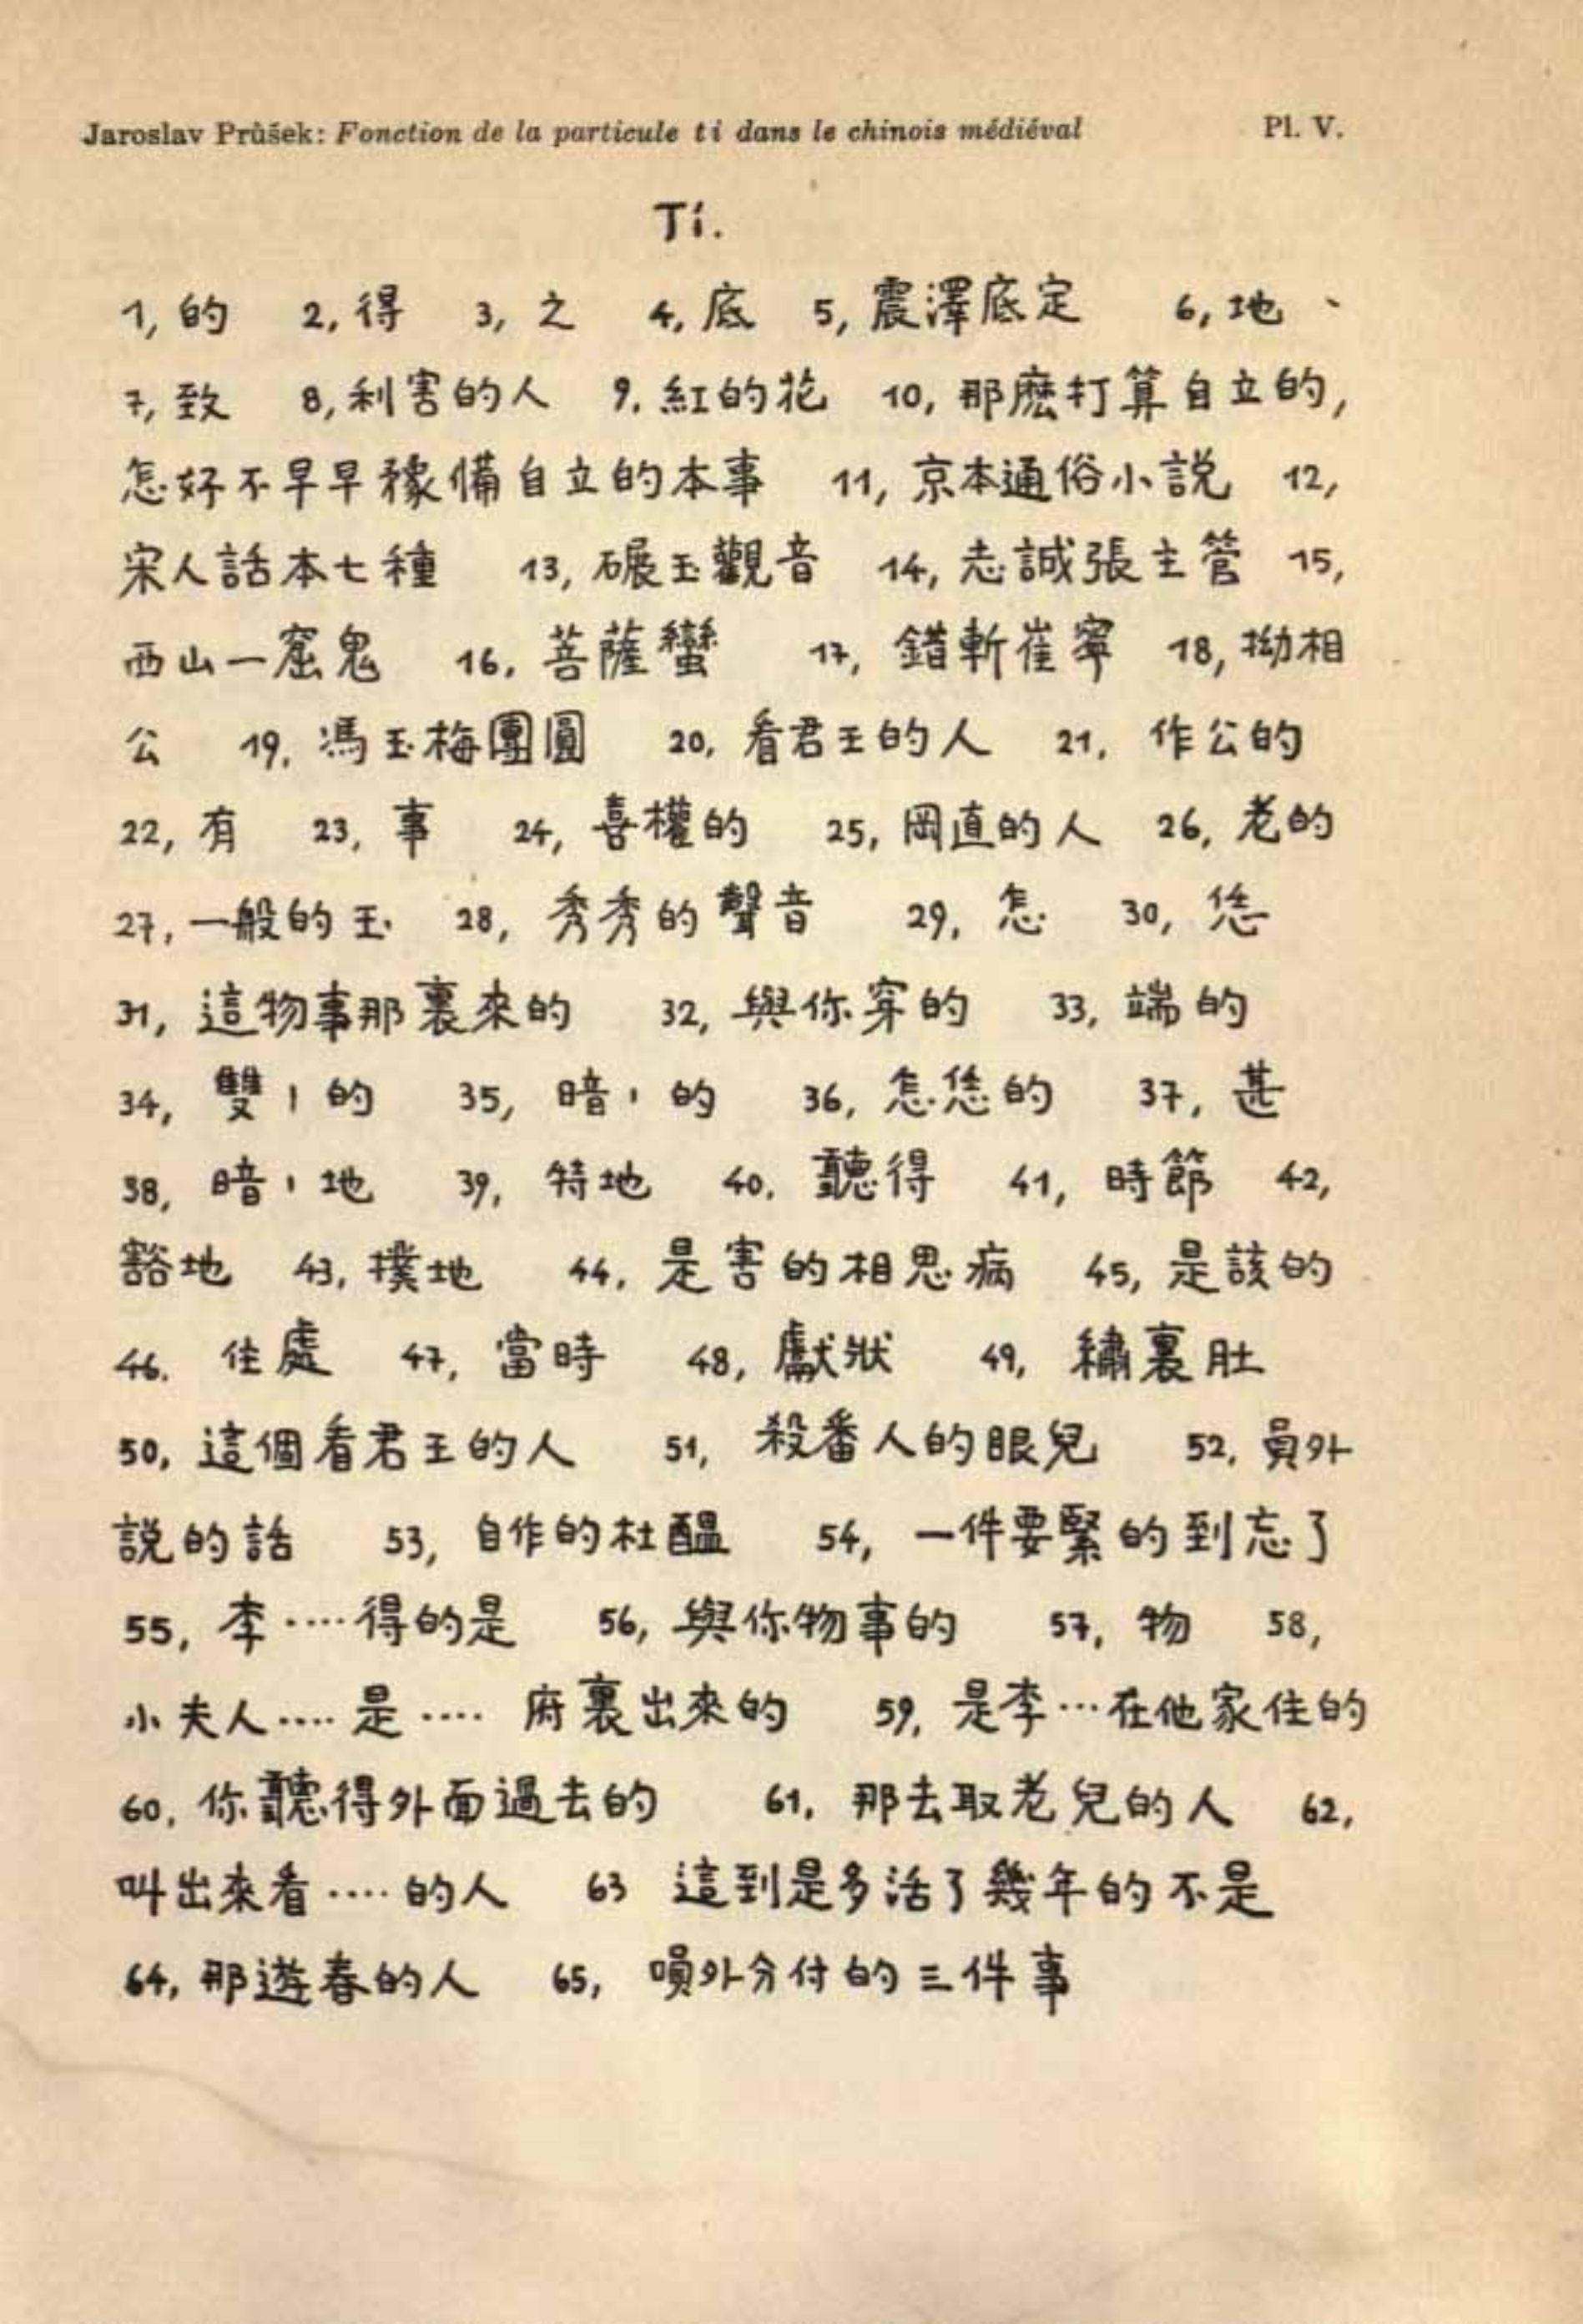 Jaroslav Průšek: Fonction de la particule ti dans le chinois médiéval Pl. V.
Ti.
1, 的 2, 得 3, 之 4, 底 5, 震澤底定 6, 地、
7, 致 8, 利害的人 9. 紅的花 10, 那麽打算自立的,
怎好不早早豫備自立的本事 11, 京本通俗小説 12,
宋人話本七種 13, 碾玉觀音 14, 志誠張主管 15,
西山一窟鬼 16. 菩薩蠻 17, 錯斬崔寧 18, 拗相
公 19. 馮玉梅團圓 20. 看君王的人 21. 作公的
22, 有 23, 事 24, 喜權的 25, 岡直的人 26, 老的
27, 一般的玉 28, 秀秀的聲音 29, 怎 30, 恁
31, 這物事那裏來的 32, 與你穿的 33, 端的
34, 雙丨的 35, 暗丨的 36, 怎恁的 37, 甚
38, 暗丨地 39, 特地 40. 聽得 41, 時節 42,
豁地 43, 撲地 44. 是害的相思病 45, 是該的
46. 住處 47, 當時 48, 獻狀 49, 繡裏肚
50, 這個看君王的人 51, 殺番人的眼兒 52. 員外
説的話 53, 自作的杜醖 54, 一件要緊的到忘了
55, 李·····得的是 56, 與你物事的 57, 物 58,
小夫人···· 是···· 府裏出來的 59, 是李···在他家住的
60. 你聽得外面過去的 61. 那去取老兒的人 62,
叫出來看····的人 63 這到是多活了幾年的不是
64, 那遊春的人 65, 嗊外分付的三件事